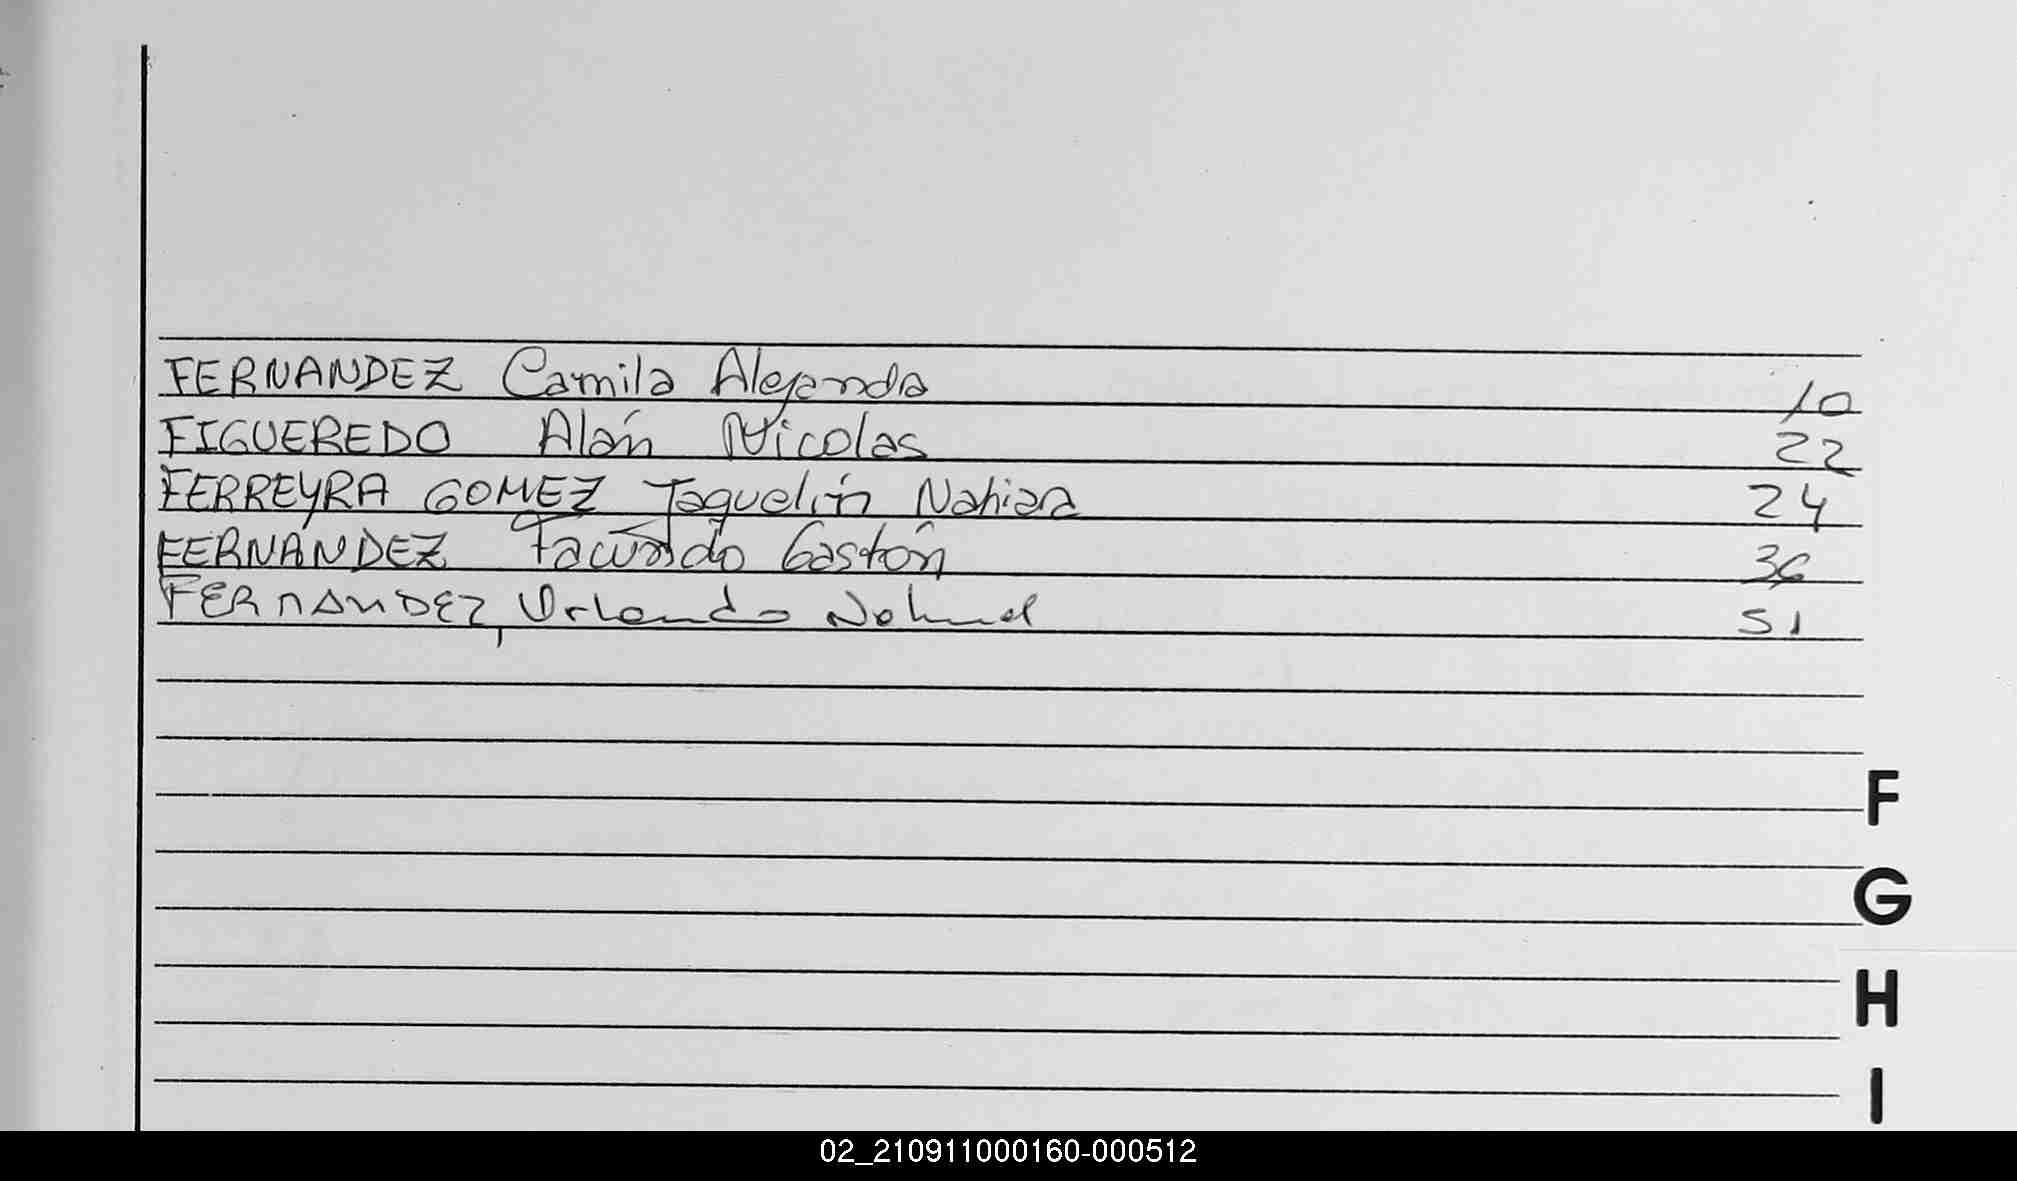 FERNANDEZ Camila Alejandra 10
FIGUEREDO Alán Nicolas 22
FERREYRA GOMEZ Jaquelin Nahiara 24
FERNANDEZ Facundo Gastón 36
FERNANDEZ, Orlando Nahuel 51
F
G
H
I
02_210911000160-000512